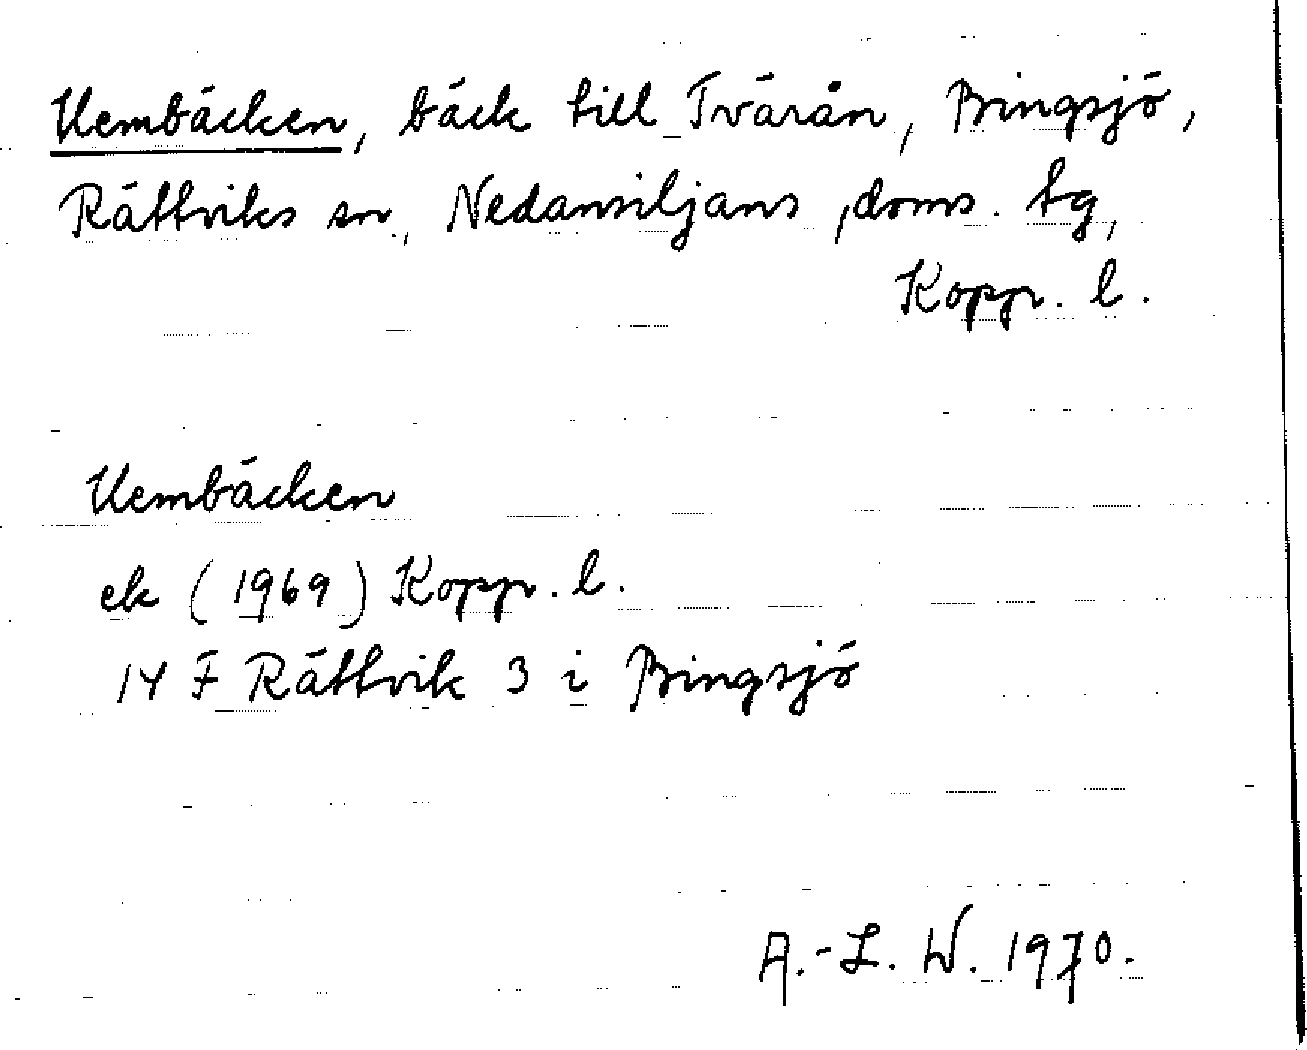 Uembäcken, bäck till Tvärån, Bingsjö,
Rättviks sn, Nedansiljans doms. tg,
Kopp. l.
Uembäcken
ek (1969) Kopp. l.
14 F Rättvik 3 i Bingsjö
A.-L. W. 1970.